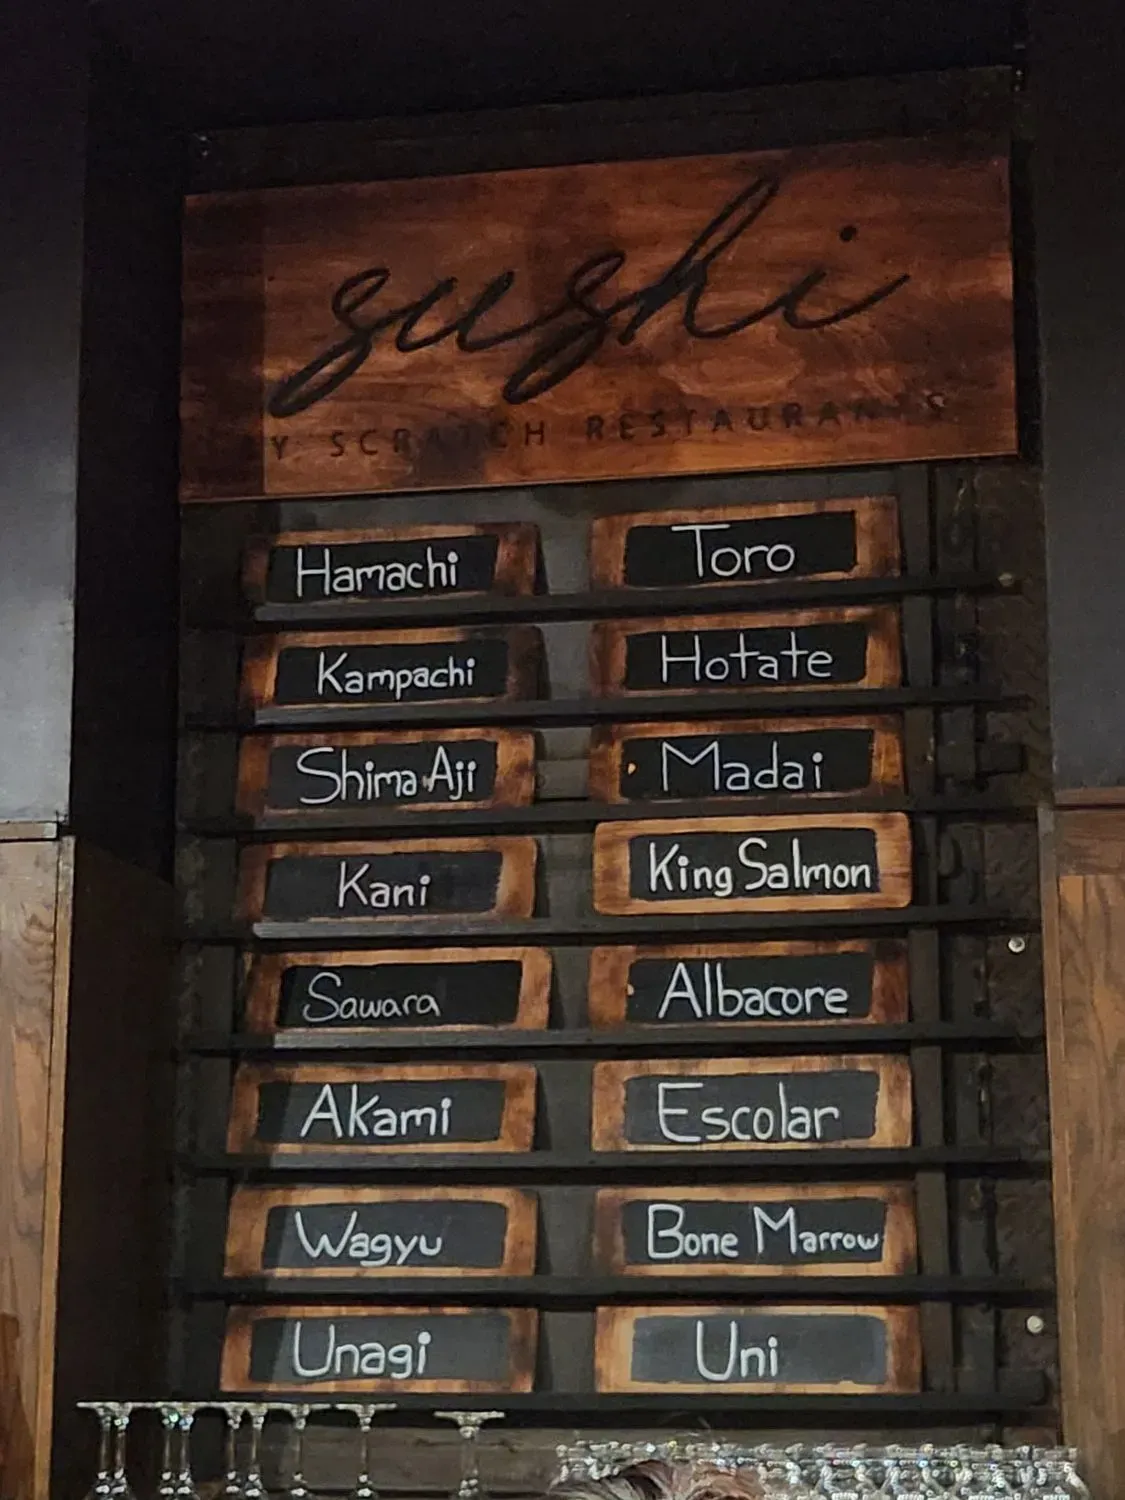 sushi
BY SCRATCH RESTAURANTS
Hamachi
Toro
Kampachi
Hotate
Shima Aji
Madai
Kani
King Salmon
Sawara
Albacore
Akami
Escolar
Wagyu
Bone Marrow
Unagi
Uni